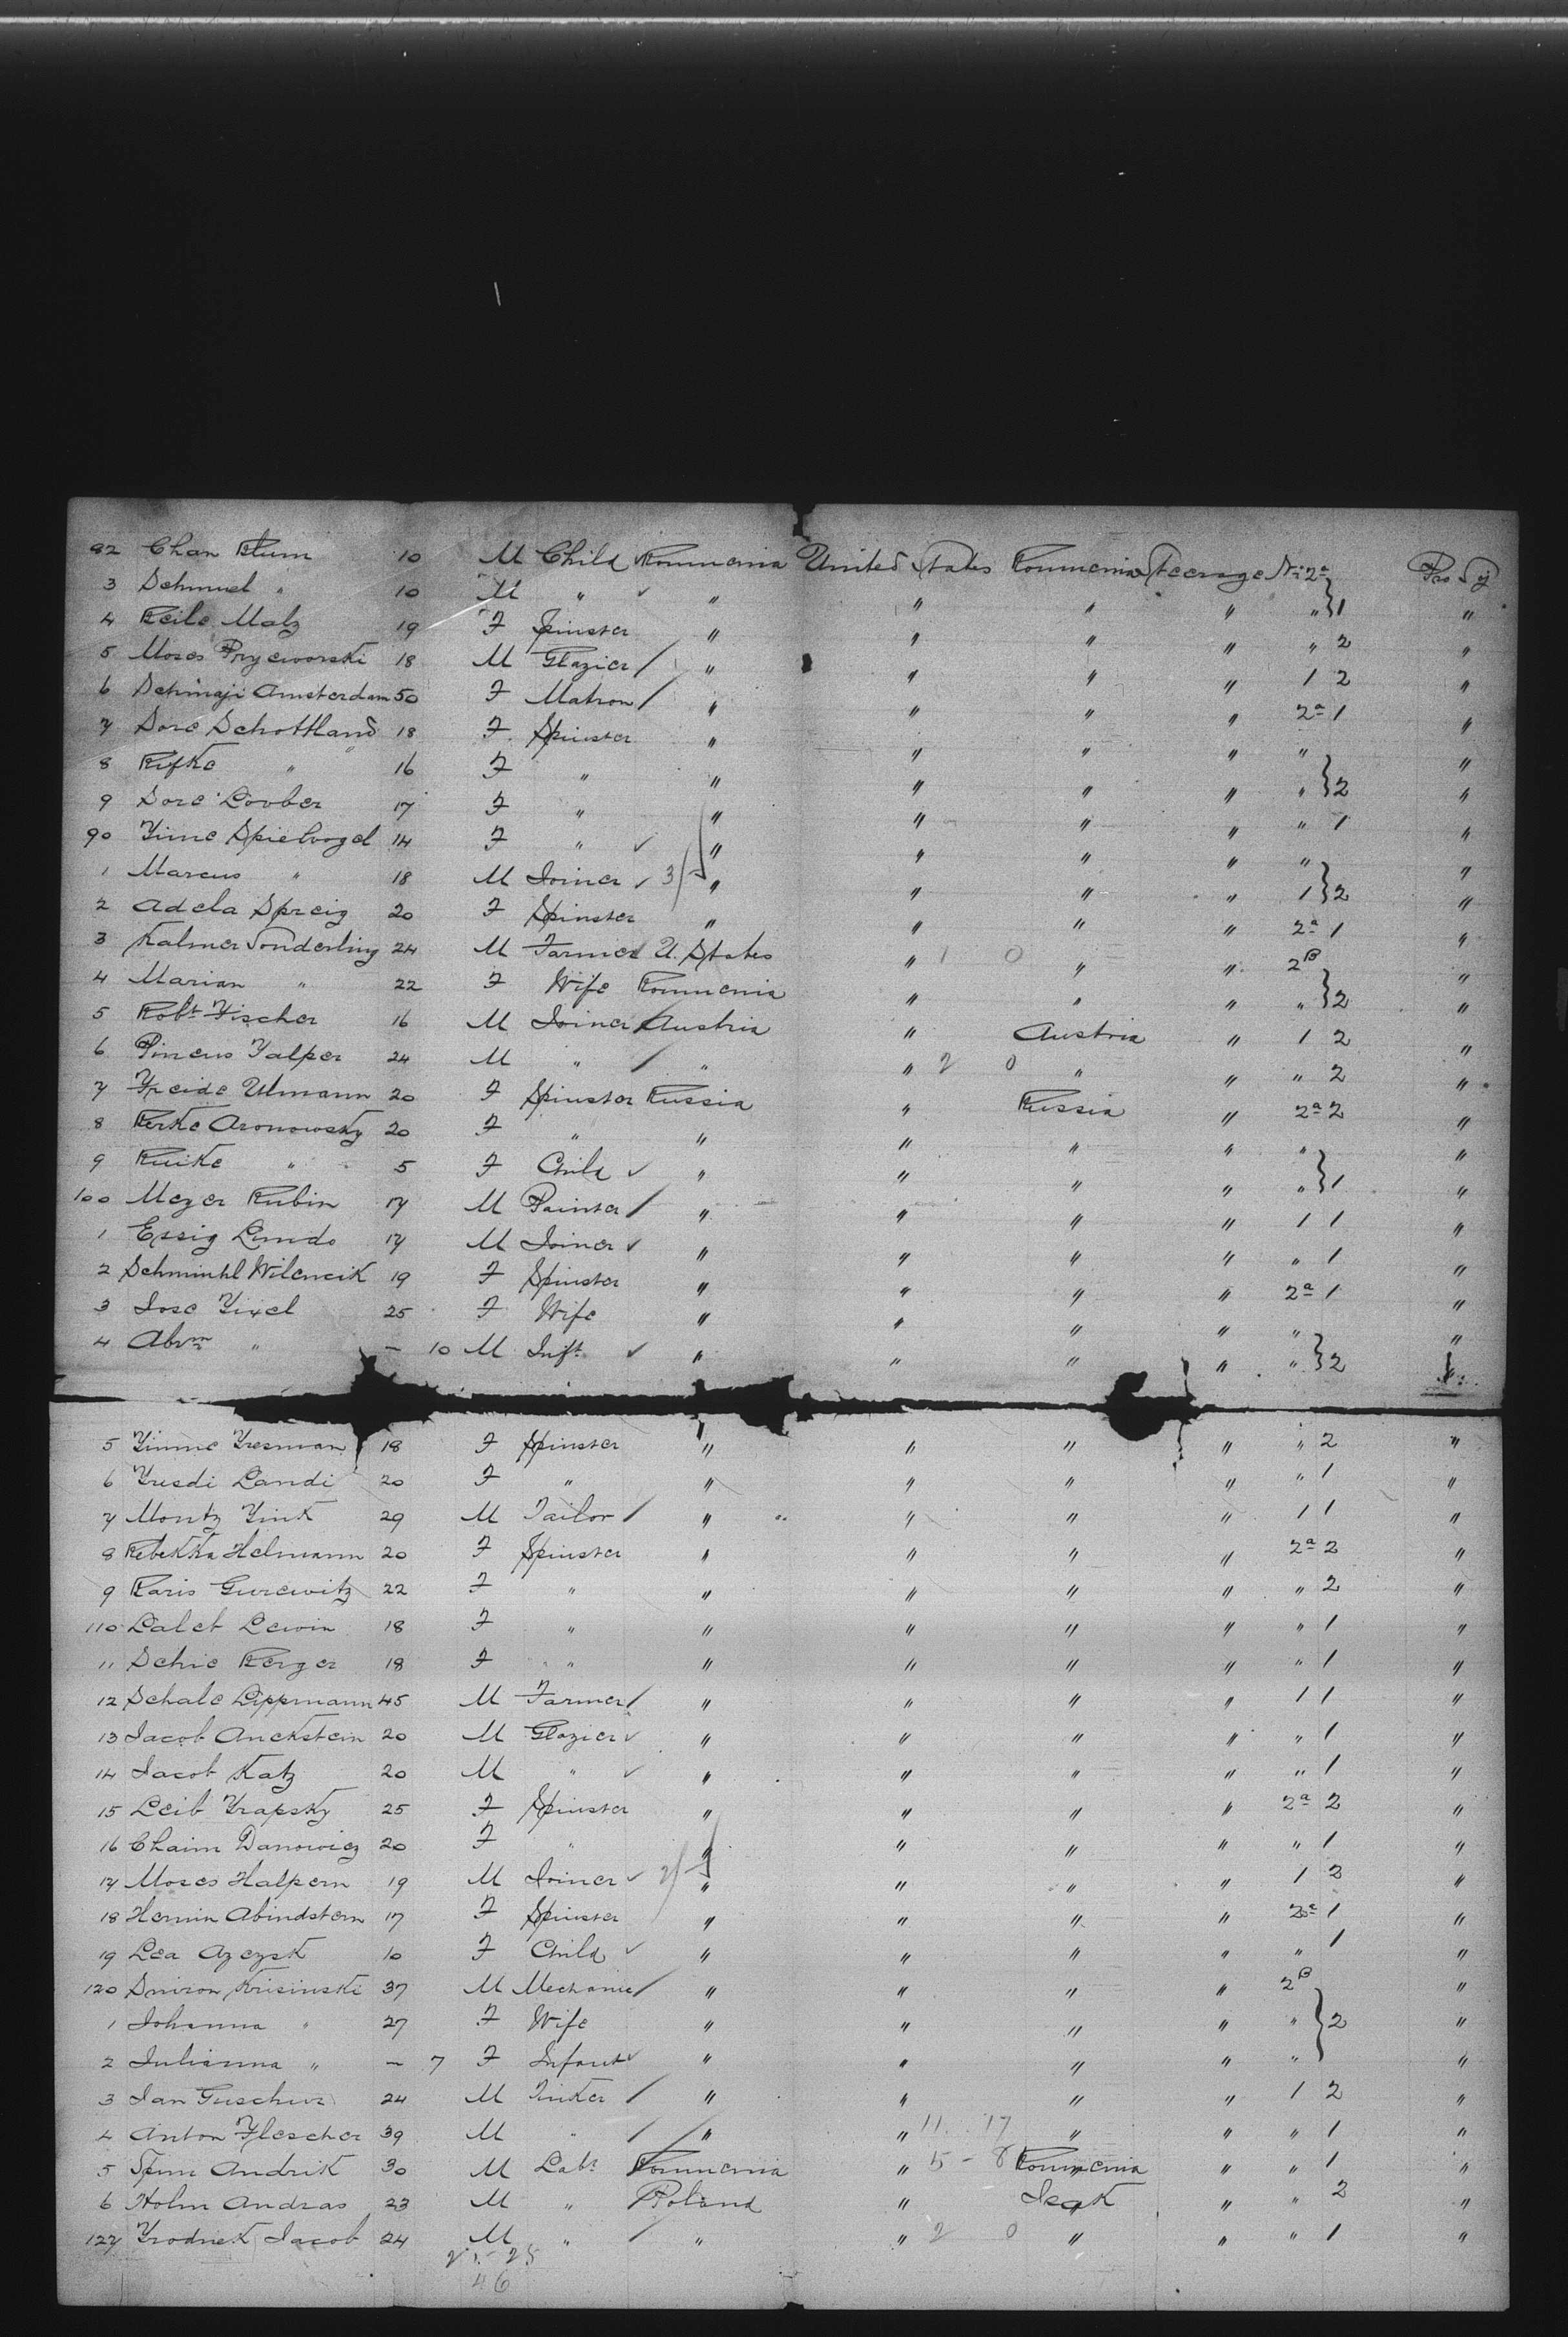 82 Chan Blum 10 M Child Roumenia United States Roumenia Steerage No 2a
3 Schmuel " 10 M " ✓ " " " " " } 1 "
4 Beile Malz 19 F Spinster " " " " " 2 "
5 Moses Pryeworski 18 M Glazier / " " " " 1 2 "
6 Schinaji Amsterdam 50 F Matron / " " " " 2a 1 "
7 Sore Schottland 18 F Spinster " " " " " "
8 Rifke " 16 F " " " " " " } 2 "
9 Sore Loober 17 F " " " " " " 1 "
90 Yime Spielvogel 14 F " ✓ " " " " " "
1 Marcus " 18 M Joiner ✓ 3/ " " " " 1 } 2 "
2 Adela Spreig 20 F Spinster " " " " 2a 1 "
3 Kalmer Sonderling 24 M Farmer U. States " 1 0 " " 2B "
4 Marian " 22 F Wife Roumenia " " " " } 2 "
5 Robt Fischer 16 M Joiner / Austria " Austria " 1 2 "
6 Pincus Yalper 24 M " / " " 2 0 " " " 2 "
7 Freide Ulmann 20 F Spinster Russia " Russia " 2a 2 "
8 Berke Aronowsky 20 F " " " " " " "
9 Ruike " 5 F Child ✓ " " " " " } 1 "
100 Meyer Rubin 17 M Painter / " " " " 1 1 "
1 Essig Lindo 17 M Joiner ✓ " " " " " 1 "
2 Schminhl Wilencik 19 F Spinster " " " " 2a 1 "
3 Jose Yixel 25 F Wife " " " " " "
4 Abrm " — 10 M Inft ✓ " " " " " } 2
5 Yimme Yresman 18 F Spinster " " " " " 2 "
6 Yresdi Landi 20 F " " " " " " 1 "
7 Montz Yink 29 M Tailor / " " " " 1 1 "
8 Rebekka Helmann 20 F Spinster " " " " 2a 2 "
9 Raris Gurewitz 22 F " " " " " " 2 "
110 Lalet Lewin 18 F " " " " " " 1 "
11 Schie Berger 18 F " " " " " " 1 "
12 Schale Lippmann 45 M Farmer / " " " " 1 1 "
13 Jacob Anekstein 20 M Glazier ✓ " " " " " 1 "
14 Jacob Katz 20 M " ✓ " " " " " 1 "
15 Leib Yrapsky 25 F Spinster " " " " 2a 2 "
16 Chaim Danowicz 20 F " " " " " " 1 "
17 Moses Halpern 19 M Joiner ✓ 2/ " " " " 1 2 "
18 Hermin Abindstern 17 F Spinster " " " " 2a 1 "
19 Lea Azezsk 10 F Child ✓ " " " " " 1 "
120 Sniron Krisinski 37 M Mechanic / " " " " 2B "
1 Johanna " 27 F Wife " " " " " } 2 "
2 Julianna " — 7 F Infant ✓ " " " " " "
3 Jan Guschur 24 M Tinker / " " " " 1 2 "
4 Anton Flescher 39 M " / " " 11 17 " " " 1 "
5 Andrik 30 M Labr Roumenia " 5 - 8 Roumenia " " 1 "
6 Holm Andras 23 M " Poland " " " 2 "
127 Yrodnek Jacob 24 M " / " " 2 0 " " " 1 "
46